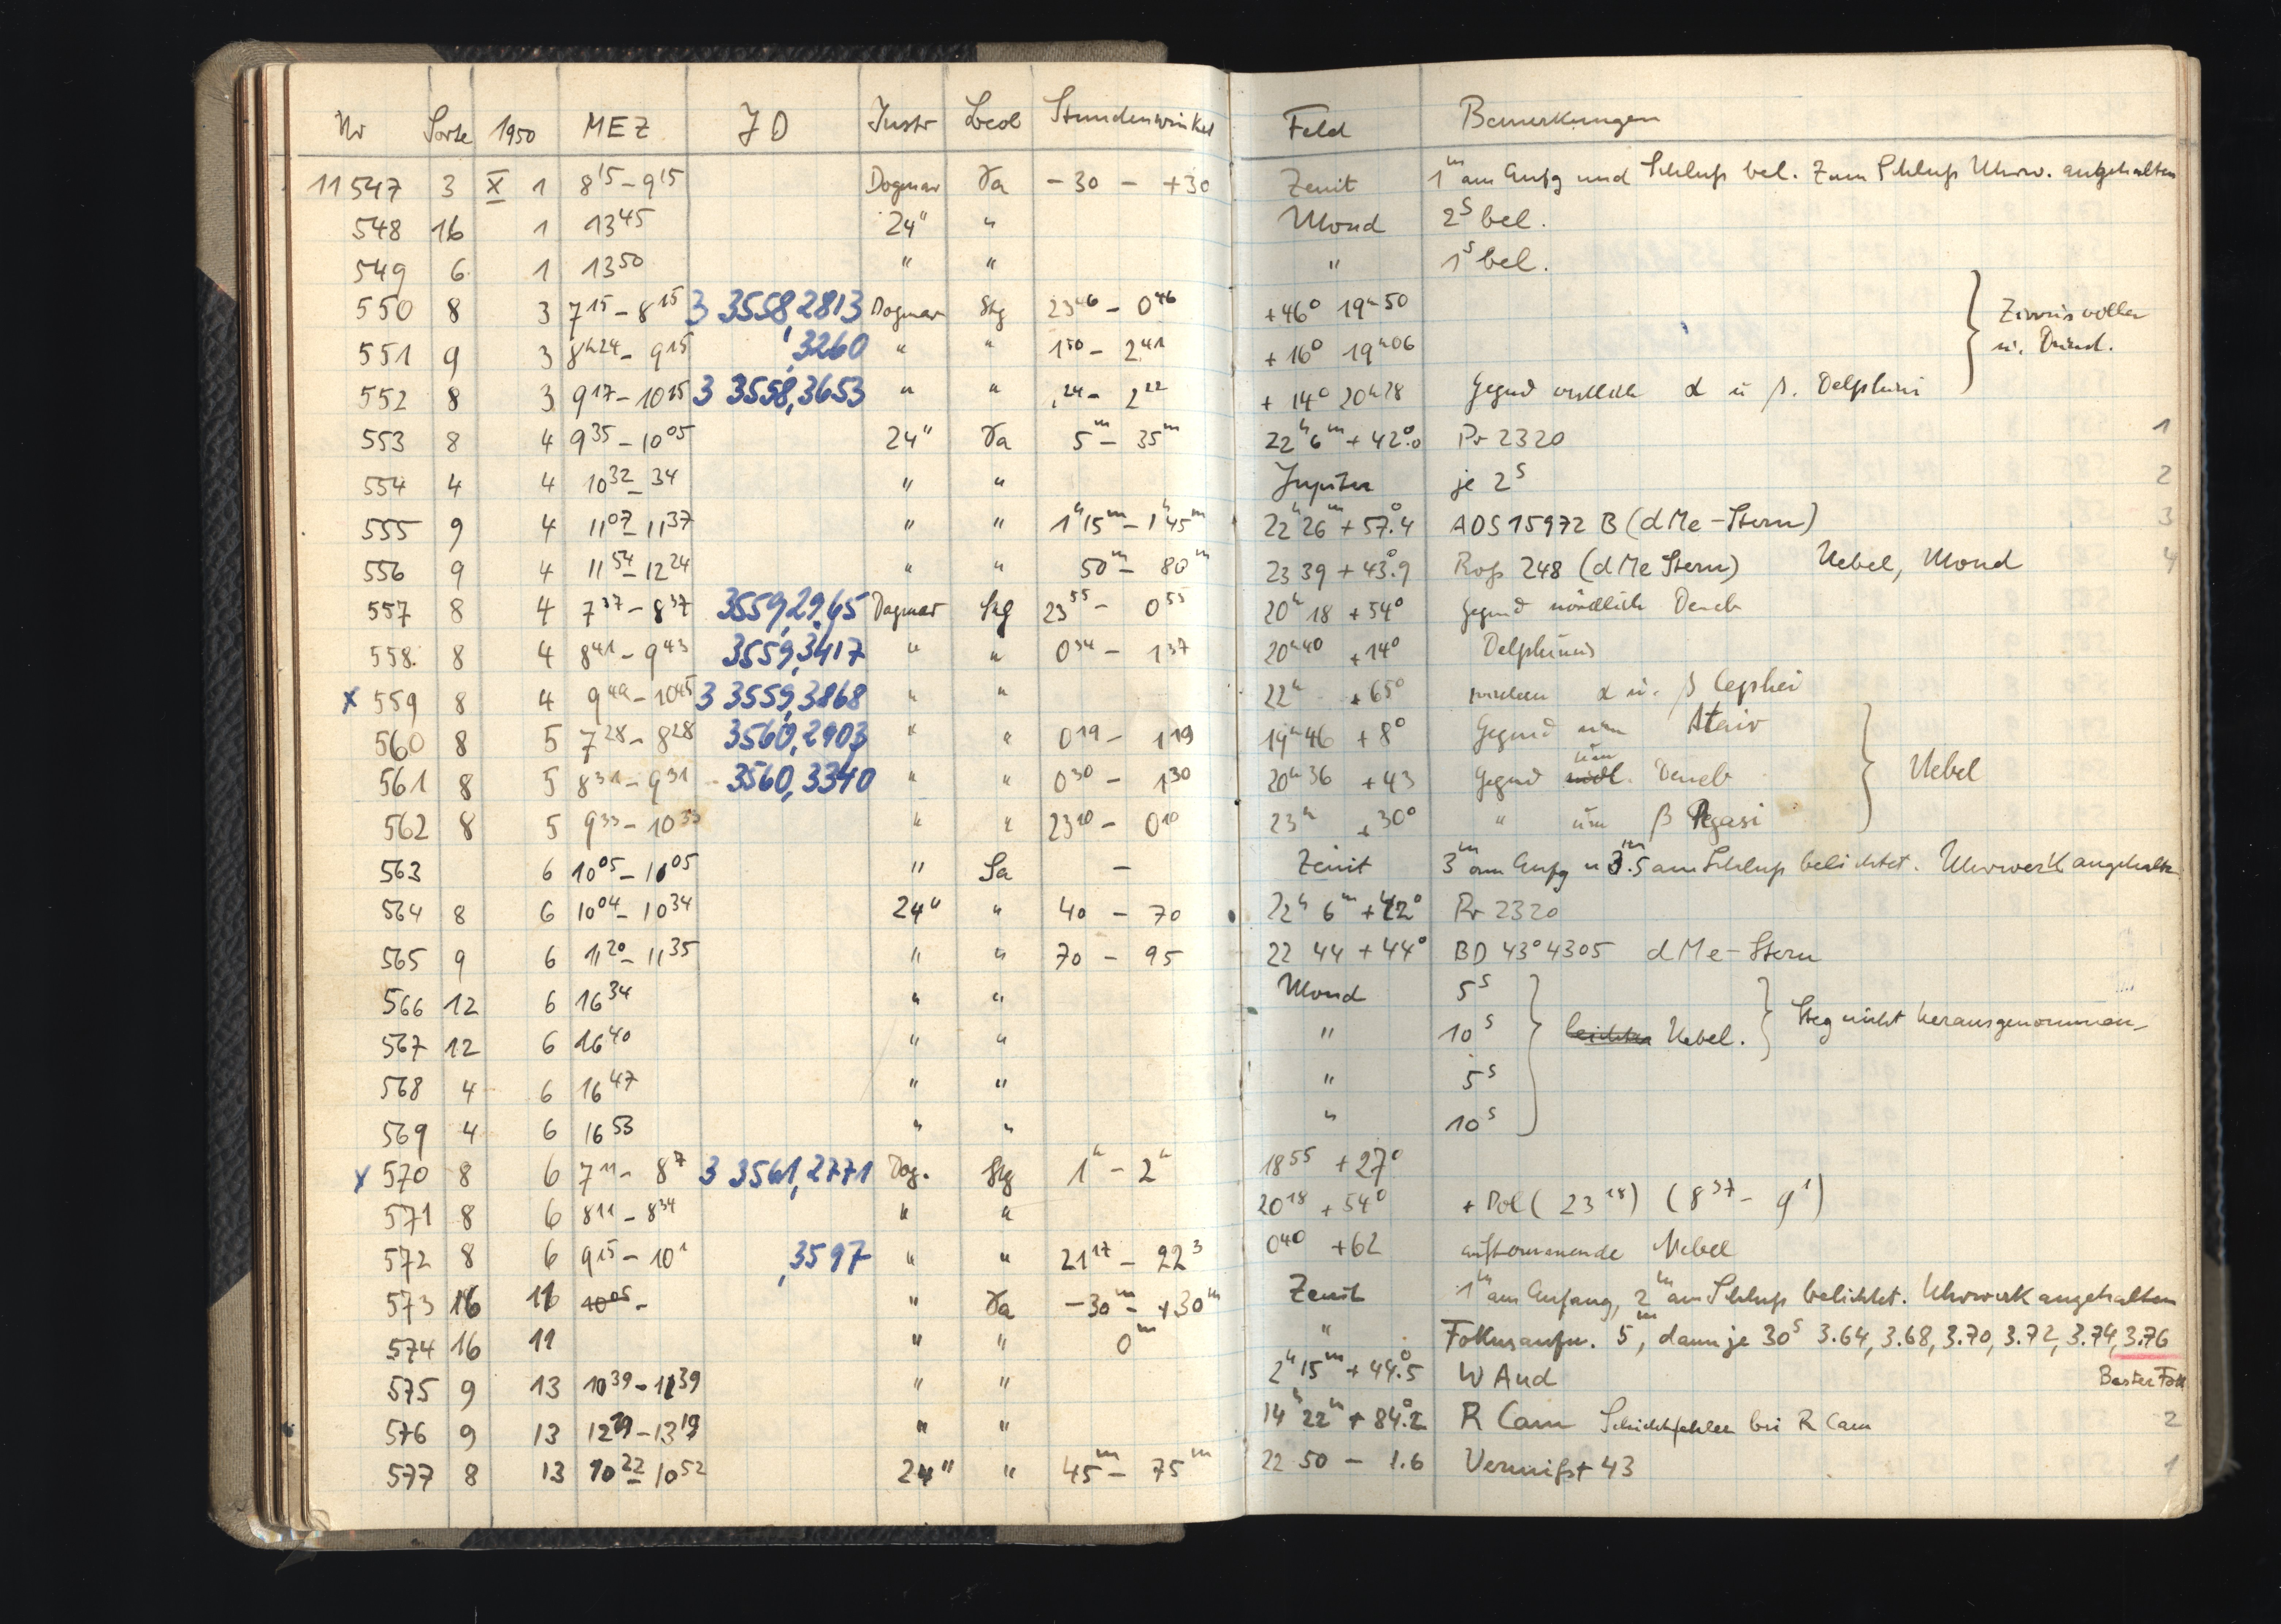 Nr Sorte 1950 MEZ JD Instr Beob Stundenwinkel Feld Bemerkungen
11547 3 X 1 8 15 – 9 15 Dogmar Ta -30 – +30 Zenit 1m am Anfg und Schluß bel. Zum Schluß Uhrw. angehalten
548 16 1 13 45 24" " Mond 2s bel.
549 6 1 13 50 " " " 1s bel.
550 8 3 7 15 – 8 15 3 3558,2813 Dogmar Stg 23 46 – 0 46 +46° 19h 50
551 9 3 8h 24 – 9 15 ,3260 " " 1 50 – 2 41 +16° 19h 06 u. Dunst.
552 8 3 9 17 – 10 15 3 3558,3653 " " 24 – 2 22 +14° 20h 28 Gegend α u β. Delphini
553 8 4 9 35 – 10 05 24" Ta 5m – 35m 22h 6m +42°.0 Pr 2320 1
554 4 4 10 32 – 34 " " Jupiter je 2s 2
555 9 4 11 07 – 11 37 " " 1h 15m – 1h 45m 22h 26m +57°.4 ADS 15972 B (dMe-Stern) 3
556 9 4 11 54 – 12 24 " " 50m – 80m 23 39 +43°.9 Roß 248 (dMe Stern) Nebel, Mond 4
557 8 4 7 37 – 8 37 3559,2965 Dogmar Stg 23 55 – 0 55 20h 18 +54° Gegend nördlich Deneb
558. 8 4 8 41 – 9 43 3559,3417 " " 0 34 – 1 37 20h 40 +14° Delphinus
x 559 8 4 9 49 – 10 45 3 3559,3868 " " 22h +65° α u. β Cephei
560 8 5 7 28 – 8 28 3560,2903 " " 0 19 – 1 19 19h 46 +8° Gegend um Atair
561 8 5 8 31 – 9 31 3560,3340 " " 0 30 – 1 30 20h 36 +43 Gegend um Deneb Nebel
562 8 5 9 33 – 10 33 " " 23 10 – 0 10 23h +30° " um β Pegasi
563 6 10 05 – 11 05 " Sa – Zenit 3m am Anfg u 3m.5 am Schluß belichtet. Uhrwerk angehalten
564 8 6 10 04 – 10 34 24" " 40 – 70 22h 6m +42° Pr 2320
565 9 6 11 20 – 11 35 " " 70 – 95 22 44 +44° BD 43° 4305 dMe-Stern
566 12 6 16 34 " " Mond 5s
567 12 6 16 40 " " " 10s Nebel. Steg nicht herausgenommen
568 4 6 16 47 " " " 5s
569 4 6 16 53 " " " 10s
x 570 8 6 7 11 – 8 7 3 3561,2771 Dog. Stg 1h – 2h 18 55 +27°
571 8 6 8 11 – 8 34 " " 20 18 +54° + Pol (23 18) (8 37 – 9 1)
572 8 6 9 15 – 10 1 ,3597 " " 21 17 – 22 3 0 40 +62 aufkommende Nebel
573 16 11 10 05 – " Ta -30m – +30m Zenit 1m am Anfang, 2m am Schluß belichtet. Uhrwerk angehalten
574 16 11 " " 0m " Fokusaufn. 5m, dann je 30s 3.64, 3.68, 3.70, 3.72, 3.74, 3.76
575 9 13 10 39 – 11 39 " " 2h 15m +44°.5 W And Bester Fok
576 9 13 12 29 – 13 19 " " 14h 22m +84°.2 R Cam Schichtfehler bei R Cam 2
577 8 13 10 22 – 10 52 24" " 45m – 75m 22 50 – 1.6 Vermißt 43 1